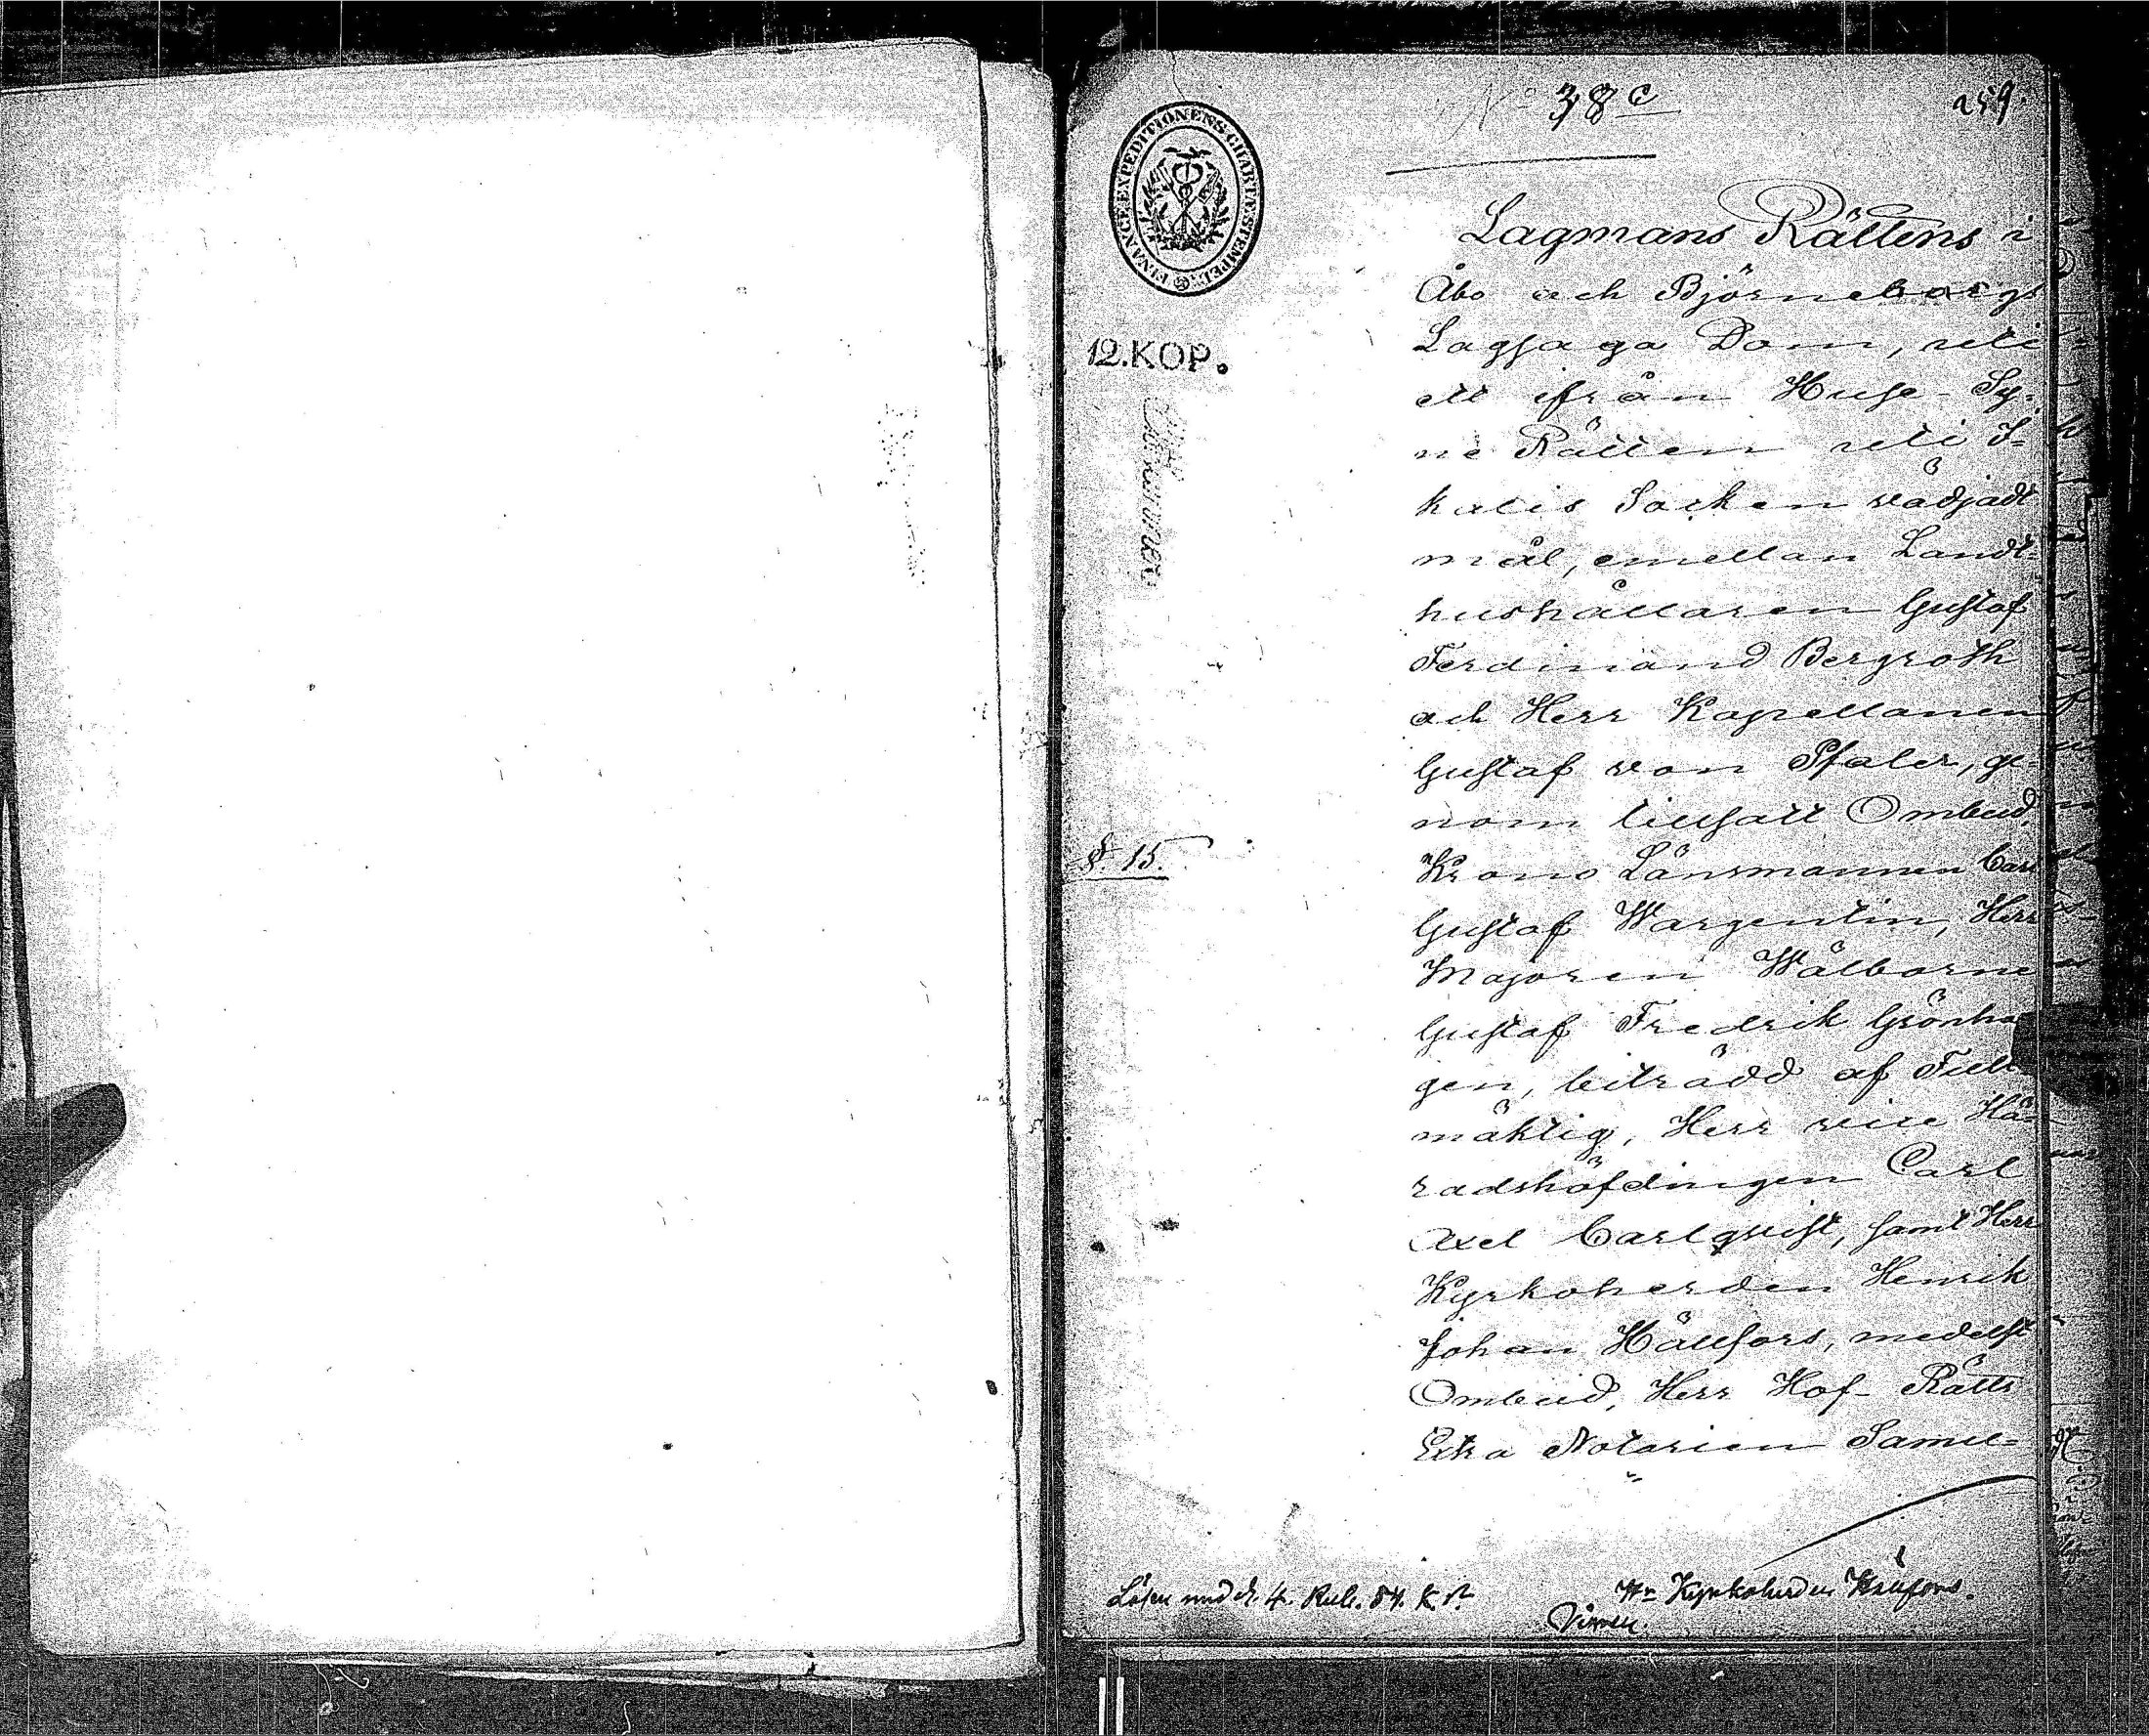 No 38 c
259.
FINANCE-EXPEDITIONENS CHARTÆ-STEMPEL
12.KOP.
Lagmans Rättens i
Åbo och Björneborgs
Lagsaga Dom, uti
ett ifrån Huse-Sy-
ne Rätten uti I-
kalis Socken vädjadt
mål, emellan Landt-
hushållaren Gustaf
Ferdinand Bergroth
och Herr Kapellanen
Gustaf von Pfaler, ge-
nom tillsatt Ombud,
§. 15.
Krono Länsmannen Carl
Gustaf Wargentin, Herr
Majoren Wälborne
Gustaf Fredrik Grönha
gen, biträdd af Full
mäktig, Herr vice Hä-
radshöfdingen Carl
Axel Carlqvist, samt Herr
Kyrkoherden Henrik
Johan Hällfors, medelst
Ombud, Herr Hof-Rätts
Extra Notarien Samu-
Lösen med 4. Rub. 84. K. Sr.
Hr Kyrkoherden Hällfors.